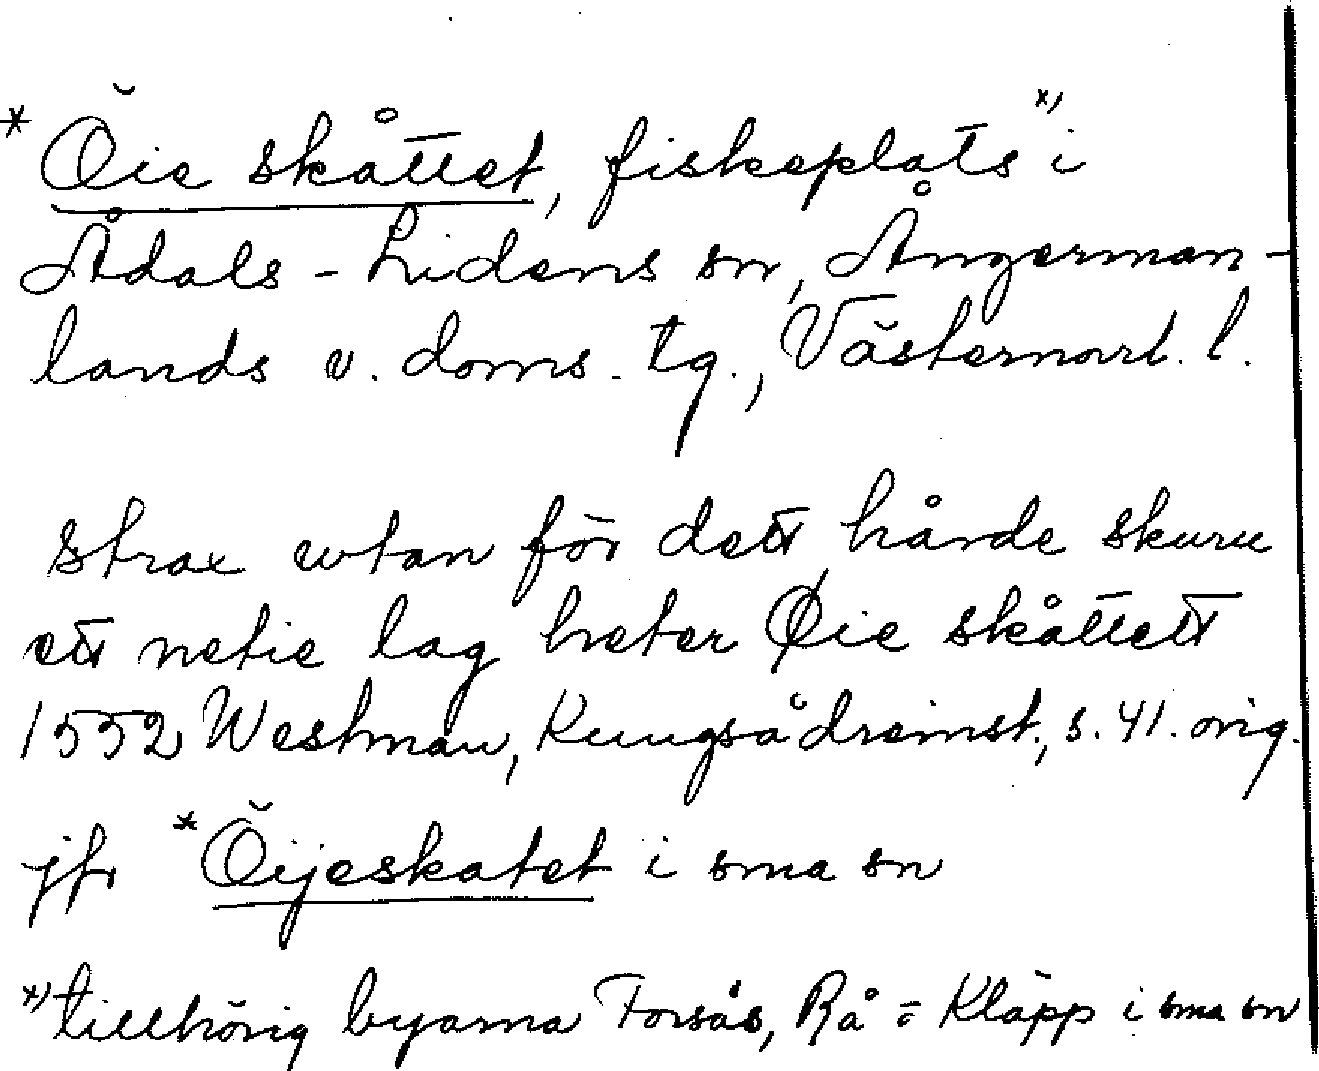 * Öie skåttet, fiskeplats *) i
Ådals-Lidens sn, Ångerman-
lands v. doms. tg., Västernorrl. l.
strax wtan för dett hårde skuru
ett netie lag heter Øie skåttett
1552 Westman, Kungsådreinst., s. 41. orig.
jfr *Öijeskatet i sma sn
*) tillhörig byarna Forsås, Rå = Kläpp i sma sn